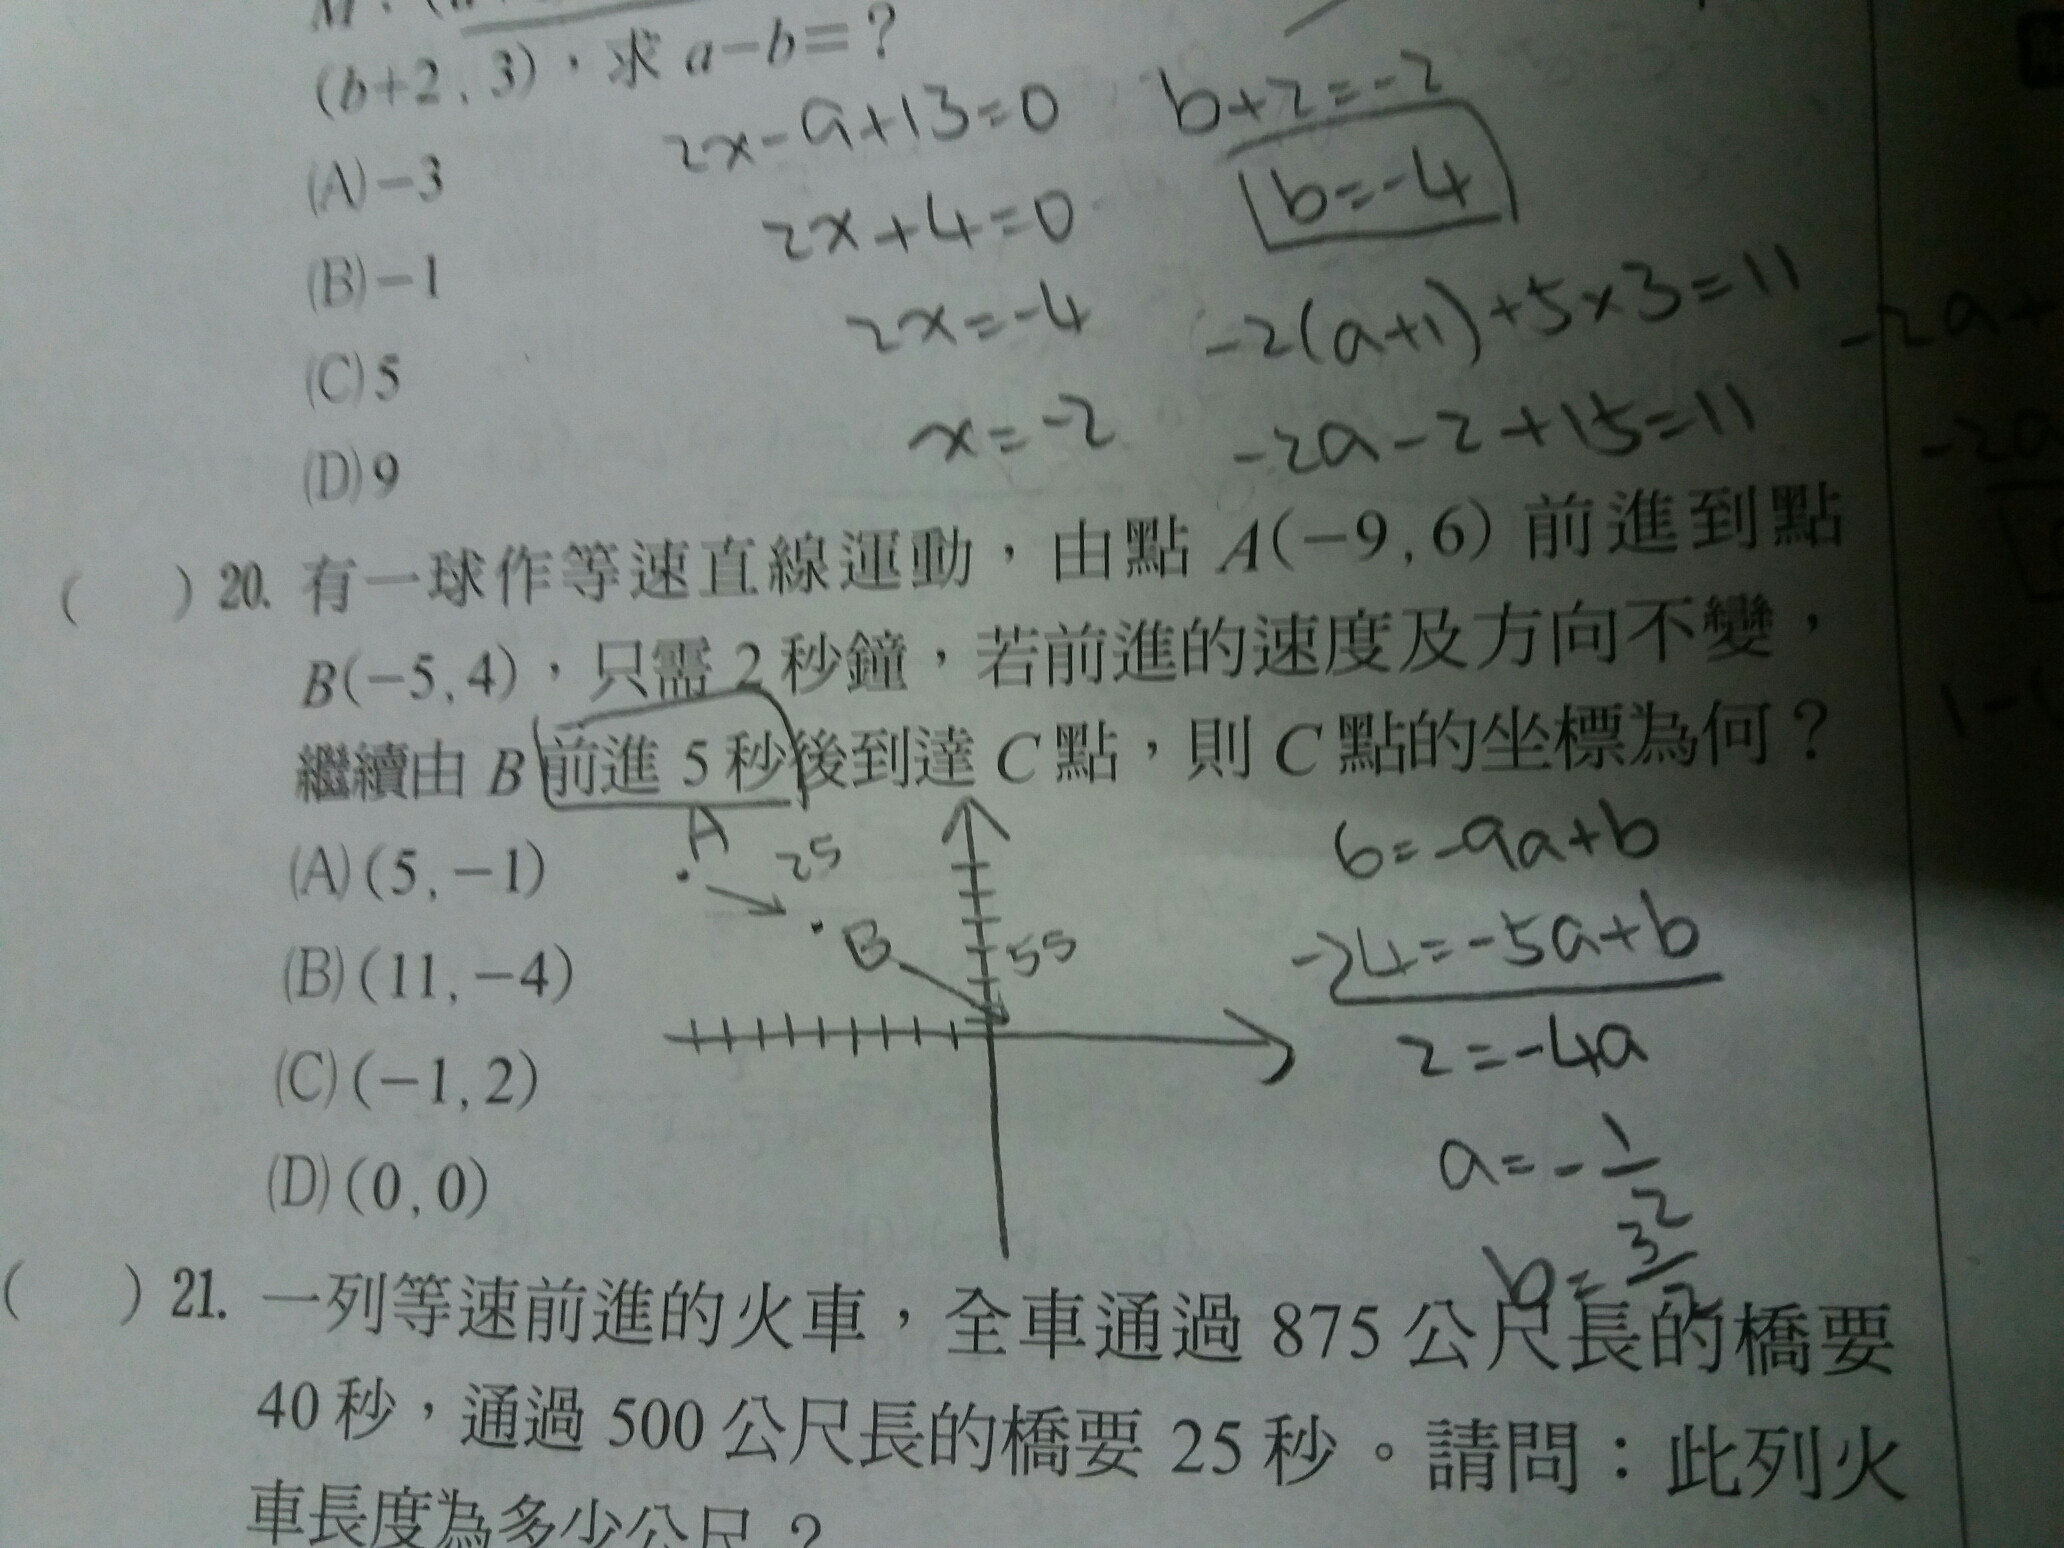 (b+2, 3)，求 a−b=？
(A) −3
(B) −1
(C) 5
(D) 9
2x-a+13=0
2x+4=0
2x=-4
x=-2
b+2=-2
b=-4
-2(a+1)+5×3=11
-2a-2+15=11
( ) 20. 有一球作等速直線運動，由點 A(−9, 6) 前進到點
B(−5, 4)，只需 2 秒鐘，若前進的速度及方向不變，
繼續由 B 前進 5 秒後到達 C 點，則 C 點的坐標為何？
(A) (5, −1)
(B) (11, −4)
(C) (−1, 2)
(D) (0, 0)
A
2s
B
5s
6=-9a+b
-)4=-5a+b
2=-4a
a=-1/2
b=3/2
( ) 21. 一列等速前進的火車，全車通過 875 公尺長的橋要
40 秒，通過 500 公尺長的橋要 25 秒。請問：此列火
車長度為多少公尺？